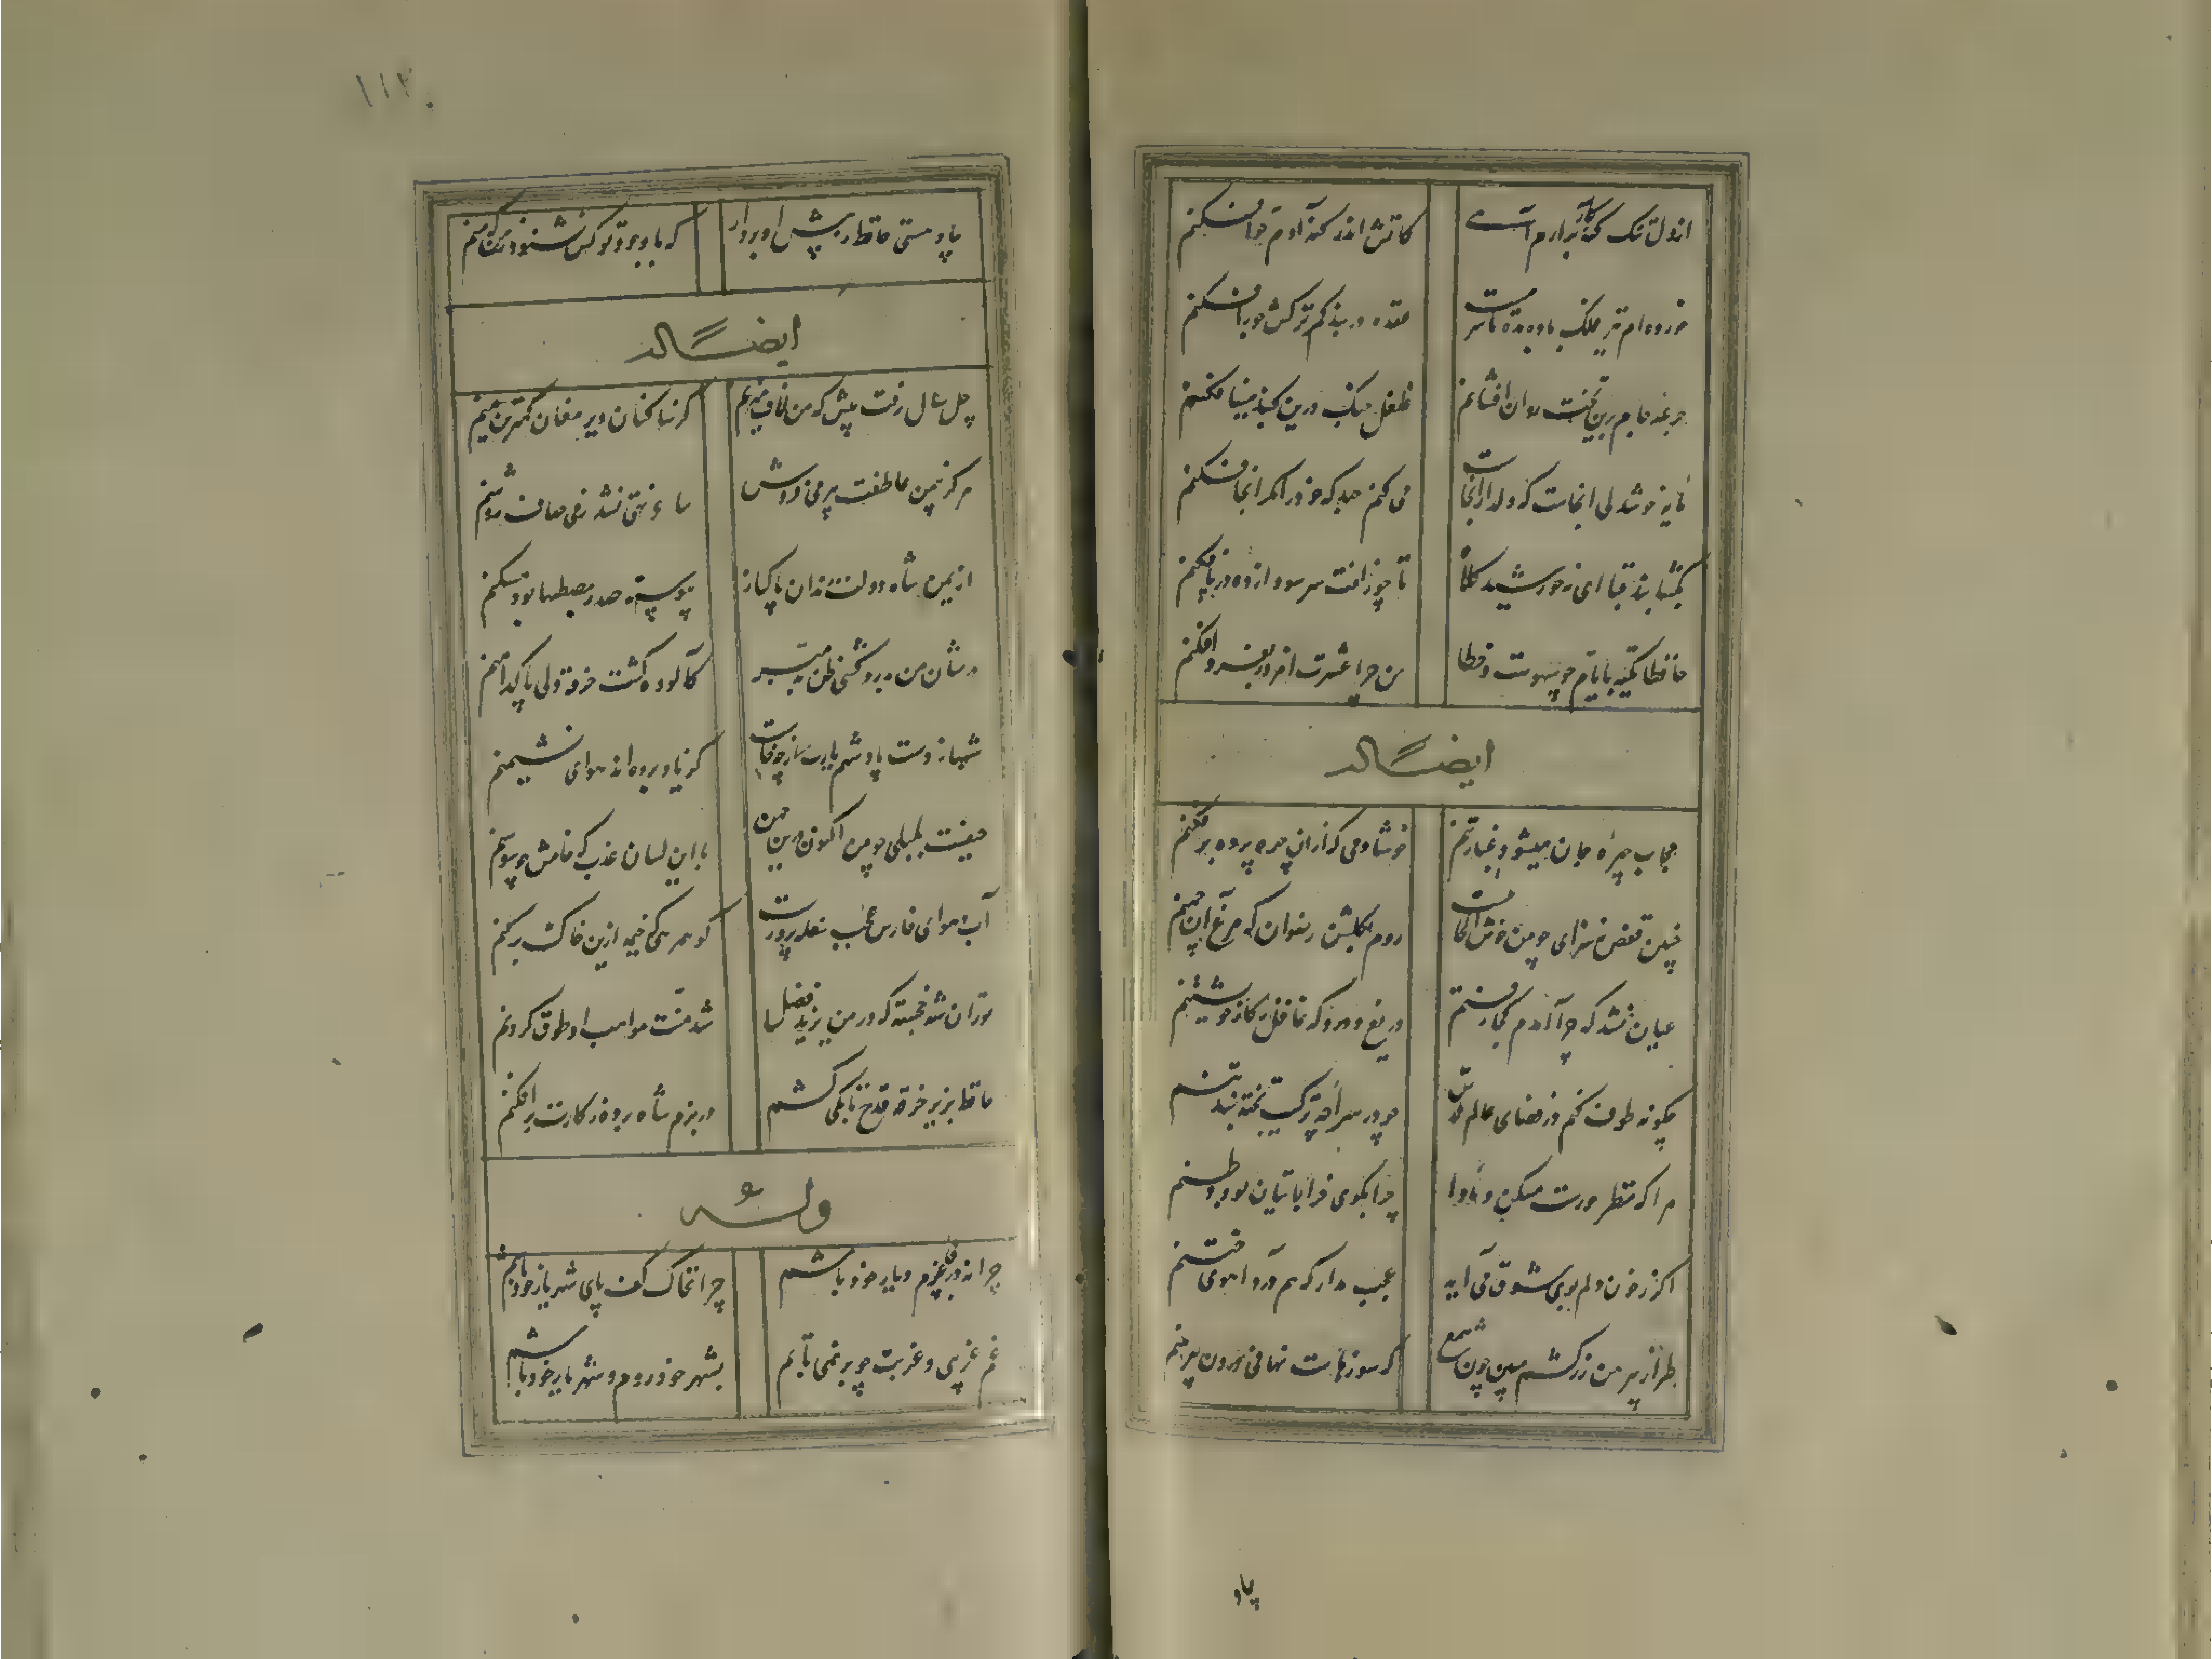 از دل تنک کنه‌کار برآرم آهی
کاتش اندر کنه آدم و حوا فکنم
خورده‌ام تیر فلک باده بده تا سرمست
عقده در بند کمر ترکش جوزا فکنم
جرعه جام برین تخت روان افشانم
غلغل چنک درین کنبد مینا فکنم
مایه خوشدلی انجاست که دلدار انجاست
می کنم جهد که خود را مکر انجا فکنم
بکشا بند قبا ای مه خورشید کلاه
تا چو زلفت سر سودازده در پا فکنم
حافظا تکیه بر ایام چو سهوست و خطا
من چرا عشرت امروز بفردا فکنم
ایضا له
حجاب چهره جان میشود غبار تنم
خوشا دمی که از ان چهره پرده بر فکنم
چنین قفس نه سزای چو من خوش الحانیست
روم بکلشن رضوان که مرغ آن چمنم
عیان نشد که چرا آمدم کجا رفتم
دریغ و درد که غافل ز کار خویشتنم
چکونه طوف کنم در فضای عالم قدس
چو در سراچه ترکیب تخته بند تنم
مرا که منظر حورست مسکن و ماوا
چرا بکوی خراباتیان بود وطنم
اکر ز خون دلم بوی شوق می آید
عجب مدار که هم درد آهوی ختنم
طراز پیرهن زرکشم مبین چون شمع
که سوزهاست نهانی درون پیرهنم
بیا و
بیا و هستی حافظ ز پیش او بردار
که با وجود تو کس نشنود ز من که منم
ایضا له
چل سال رفت بیش که من لاف میزنم
کز ساکنان دیر مغان کمترین منم
هرکز بیمن عاطفت پیر می فروش
ساغر تهی نشد ز می صاف روشنم
از یمن شاه دولت رندان پاکباز
پیوسته صدر مصطبها بود مسکنم
در شان من بدردکشی ظن بد مبر
کالوده کشت خرقه ولی پاکدامنم
شهباز دست پادشهم یارب از چه حالتست
کز یاد برده‌اند هوای نشیمنم
حیفست بلبلی چو من اکنون درین چمن
با این لسان عذب که خامش چو سوسنم
آب و هوای فارس عجب سفله پرورست
کو همرهی که خیمه ازین خاک برکنم
تورانشه خجسته که در من یزید فضل
شد منت مواهب او طوق کردنم
حافظ بزیر خرقه قدح تا بکی کشم
در بزم شاه پرده ز کارت برافکنم
وله
چرا نه در پی عزم دیار خود باشم
چرا نه خاک کف پای شهریار خود باشم
غم غریبی و غربت چو بر نمی تابم
بشهر خود روم و شهریار خود باشم